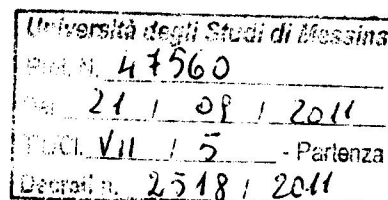 Università degli Studi di Messina
Prot. N. 47560
Del 21 / 09 / 2011
Tit./Cl. VII / 5 - Partenza
Decreti n. 2518 / 2011